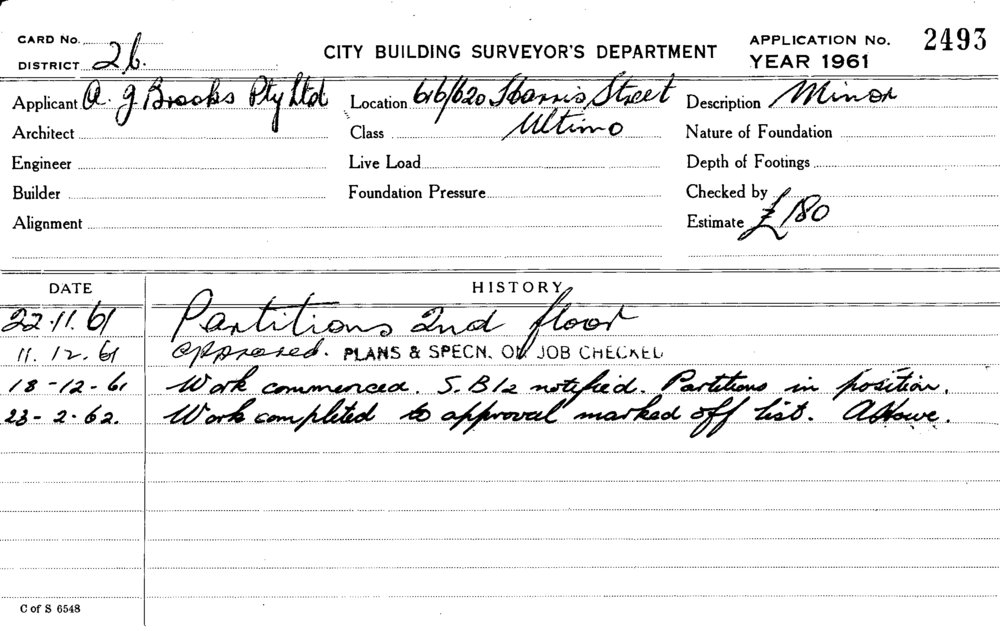 CARD No.
DISTRICT 26.
CITY BUILDING SURVEYOR'S DEPARTMENT
APPLICATION No. 2493
YEAR 1961
Applicant A. G Brooks Pty Ltd Location 616/620 Harris Street Description Minor
Architect Class Ultimo Nature of Foundation
Engineer Live Load Depth of Footings
Builder Foundation Pressure Checked by
Alignment Estimate £180
DATE HISTORY
22.11.61 Partitions 2nd floor
11.12.61 approved. PLANS & SPECN. ON JOB CHECKED
18-12-61 Work commenced. S.B12 notified. Partitions in position.
23-2-62. Work completed to approval marked off list.
C of S 6548